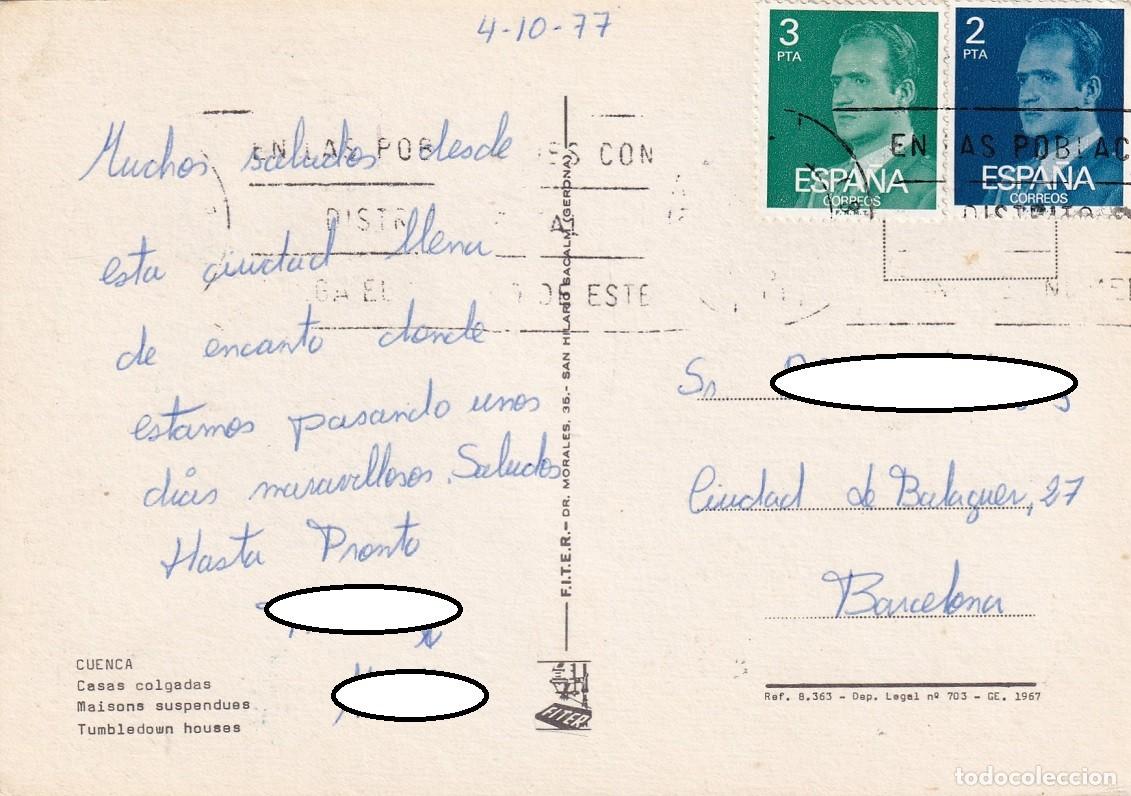 4-10-77
3
PTA
ESPAÑA
CORREOS
2
PTA
ESPAÑA
CORREOS
EN LAS POB ES CON
DISTR
GA EL DE ESTE
EN LAS POBLAC
DISTRITO
Muchos saludos desde
esta ciudad llena
de encanto donde
estamos pasando unos
días maravillosos. Saludos
Hasta Pronto
CUENCA
Casas colgadas
Maisons suspendues
Tumbledown houses
F.I.T.E.R.- DR. MORALES, 35.- SAN HILARIO SACALM (GERONA)
FITER
Sr
Ciudad de Balaguer, 27
Barcelona
Ref. 8.363 - Dep. Legal nº 703 - GE. 1967
todocoleccion